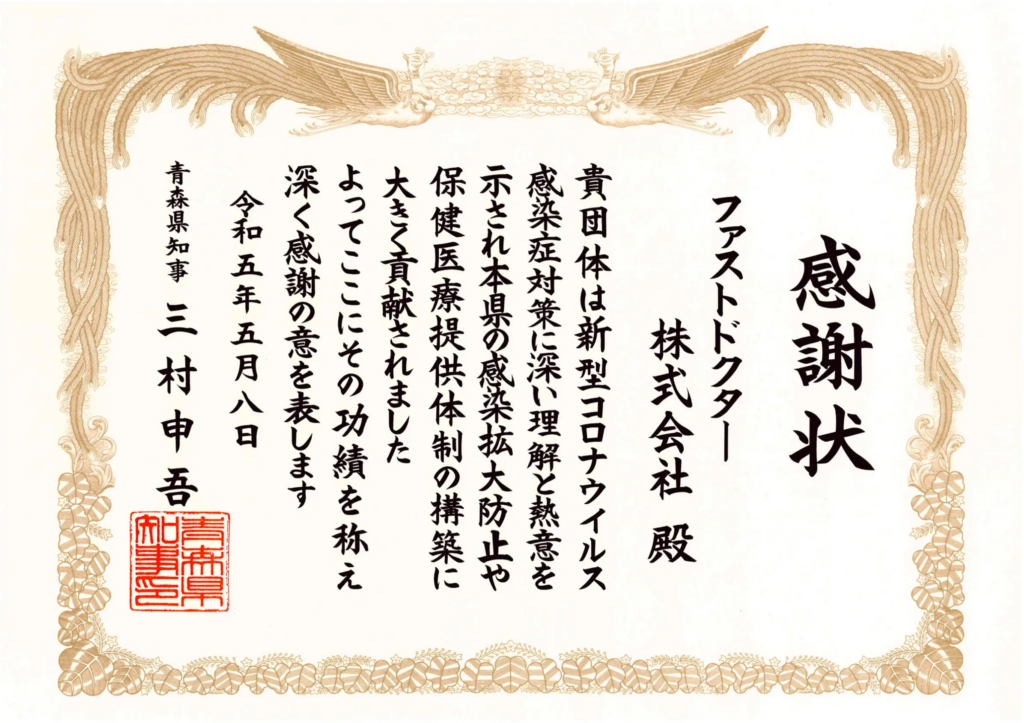 感謝状
ファストドクター
株式会社 殿
貴団体は新型コロナウイルス
感染症対策に深い理解と熱意を
示され本県の感染拡大防止や
保健医療提供体制の構築に
大きく貢献されました
よってここにその功績を称え
深く感謝の意を表します
令和五年五月八日
青森県知事 三村申吾
青森県
知事印